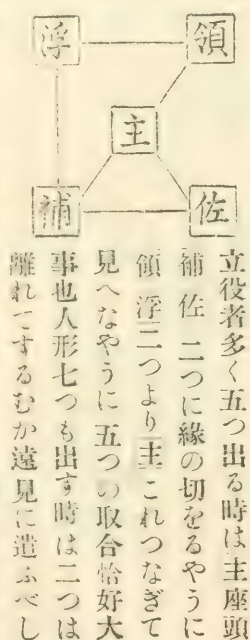 浮 領
主
補 佐
立役者多く五つ出る時は主座頭
補 佐 二つに緣の切をるやうに
領 浮 二つより主これつなぎて
見へなやうに五つの取合恰好大
事也人形七つも出す時は二つは
離れてするむか遠見に遣ふべし